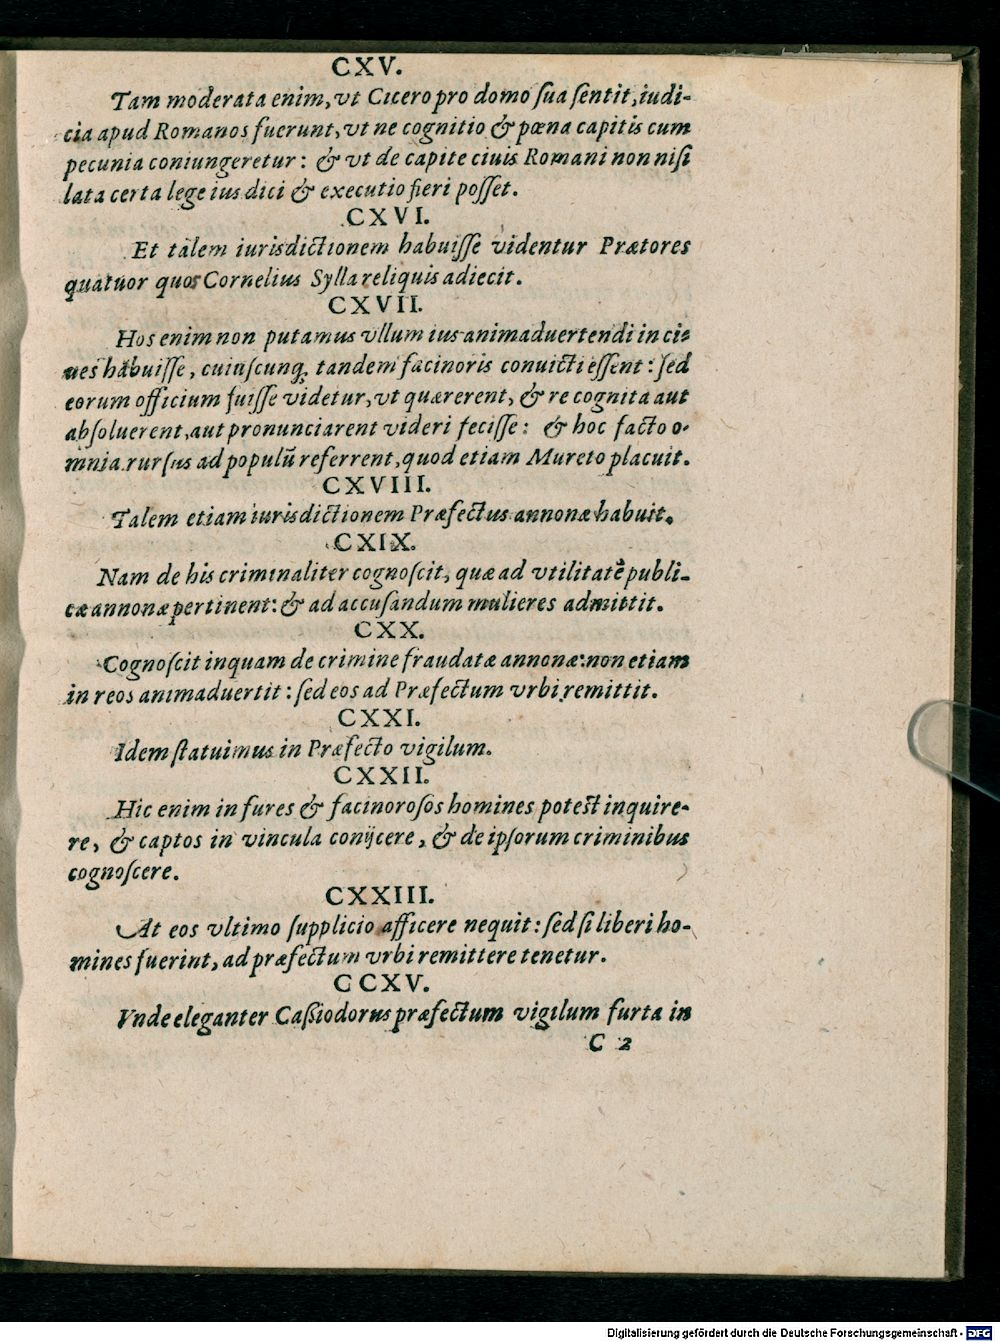 CXV.
Tam moderata enim, vt Cicero pro domo sua sentit, iudi-
cia apud Romanos fuerunt, vt ne cognitio & pœna capitis cum
pecunia coniungeretur: & vt de capite ciuis Romani non nisi
lata certa lege ius dici & executio fieri posset.
CXVI.
Et talem iurisdictionem habuisse videntur Prætores
quatuor quos Cornelius Sylla reliquis adiecit.
CXVII.
Hos enim non putamus vllum ius animaduertendi in ci-
ues habuisse, cuiuscunq; tandem facinoris conuicti essent: sed
eorum officium fuisse videtur, vt quærerent, & re cognita aut
absoluerent, aut pronunciarent videri fecisse: & hoc facto o-
mnia rursus ad populũ referrent, quod etiam Mureto placuit.
CXVIII.
Talem etiam iurisdictionem Præfectus annonæ habuit.
CXIX.
Nam de his criminaliter cognoscit, quæ ad vtilitatẽ publi-
cæ annonæ pertinent: & ad accusandum mulieres admittit.
CXX.
Cognoscit inquam de crimine fraudatæ annonæ: non etiam
in reos animaduertit: sed eos ad Præfectum vrbi remittit.
CXXI.
Idem statuimus in Præfecto vigilum.
CXXII.
Hic enim in fures & facinorosos homines potest inquire-
re, & captos in vincula conijcere, & de ipsorum criminibus
cognoscere.
CXXIII.
At eos vltimo supplicio afficere nequit: sed si liberi ho-
mines fuerint, ad præfectum vrbi remittere tenetur.
CCXV.
Vnde eleganter Cassiodorus præfectum vigilum furta in
C 2
Digitalisierung gefördert durch die Deutsche Forschungsgemeinschaft - DFG